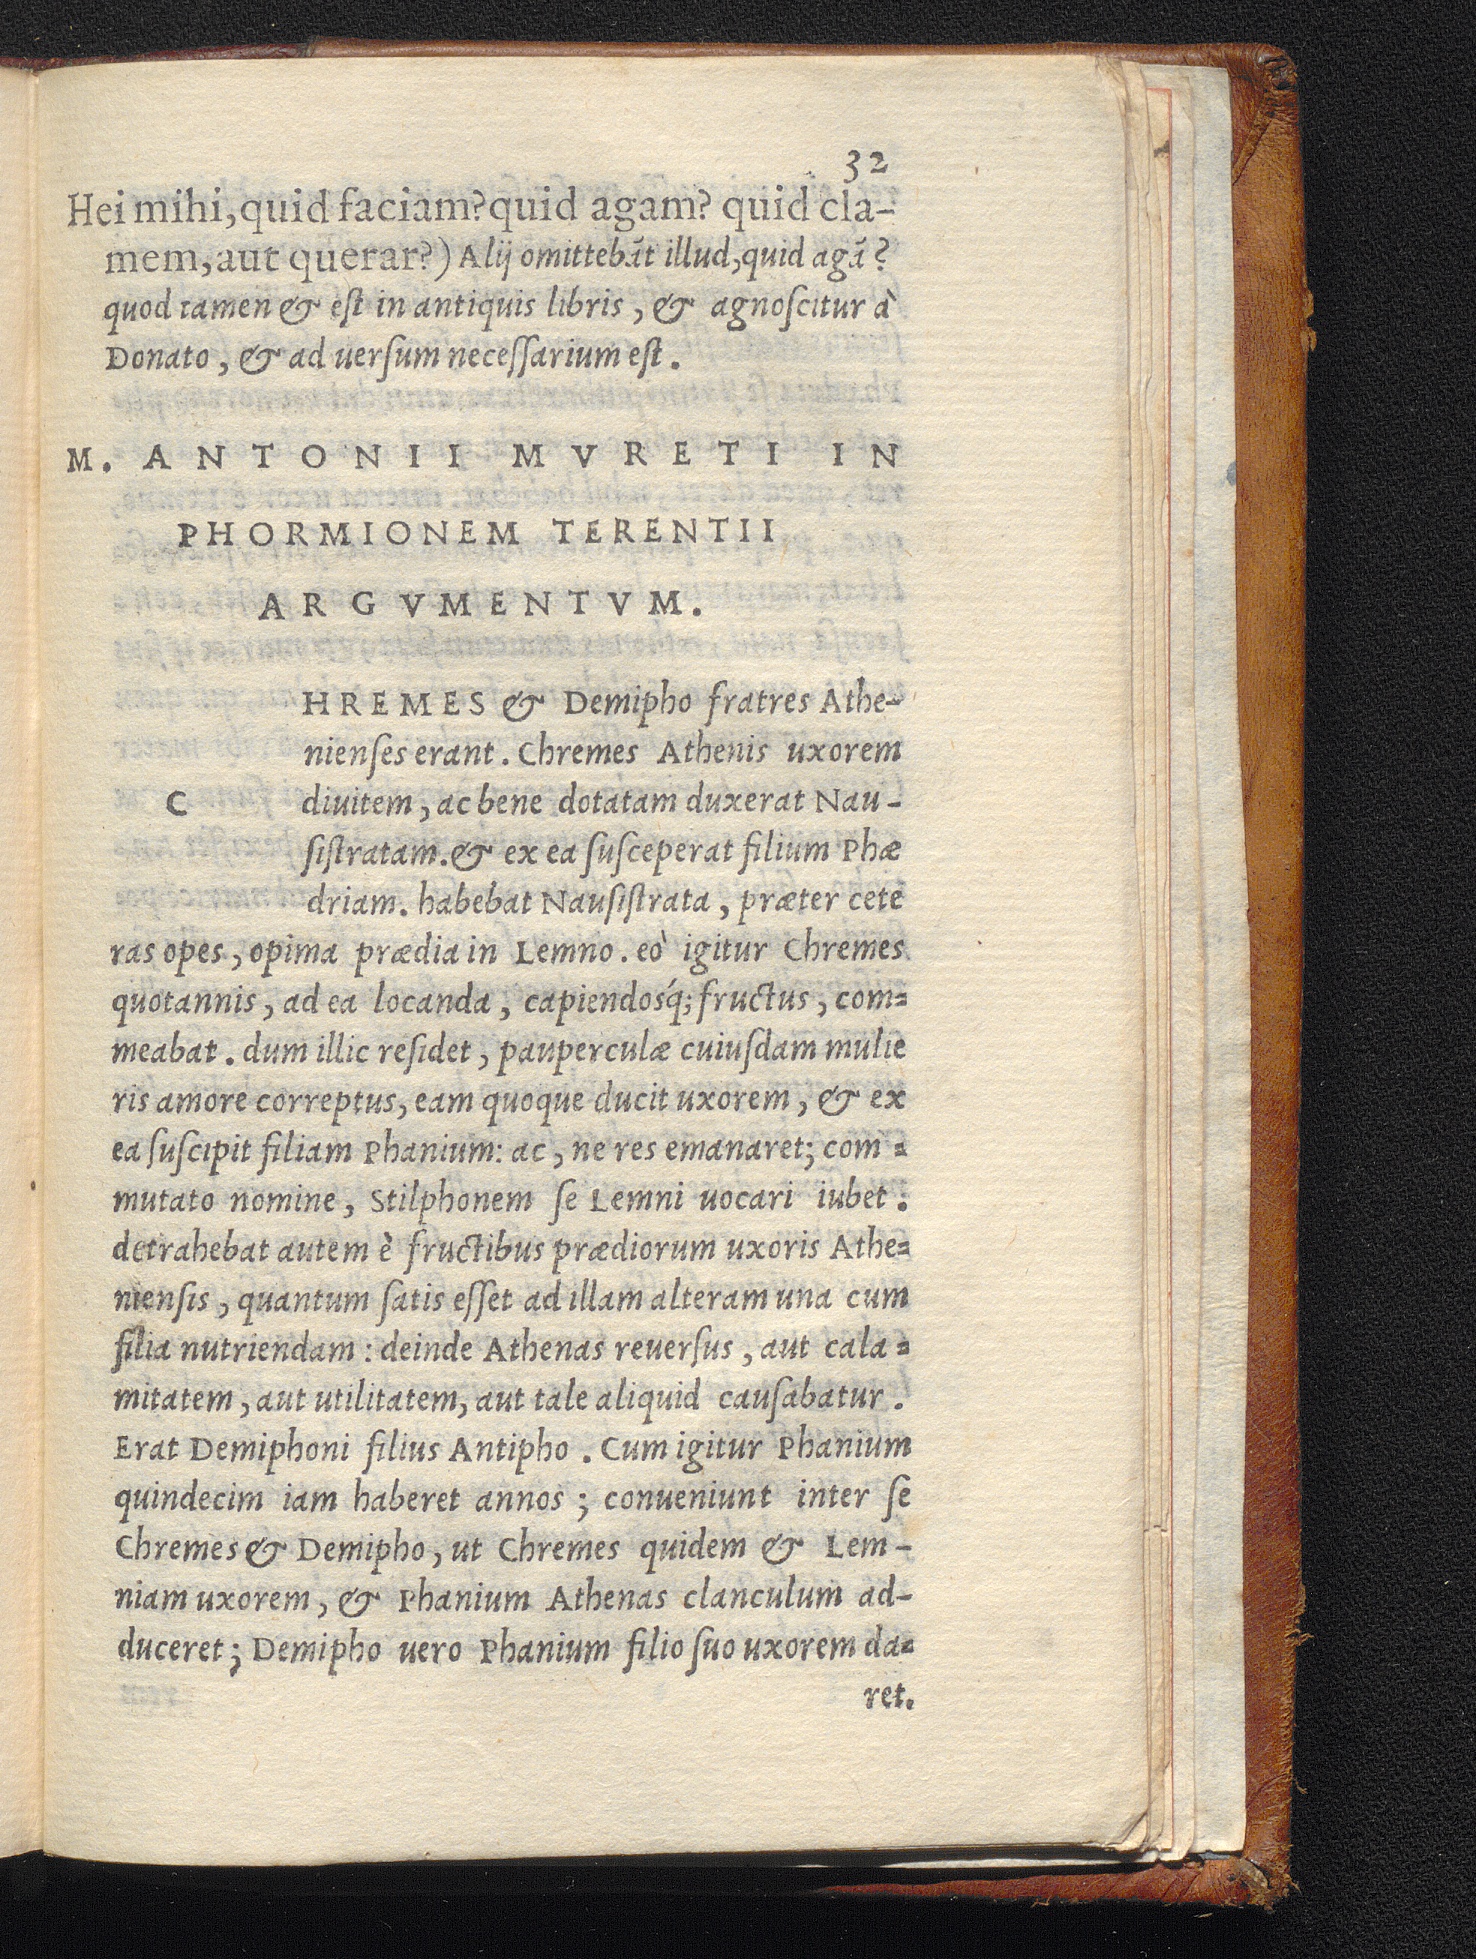 32
Hei mihi, quid faciam? quid agam? quid cla-
mem, aut querar?) Alij omittebāt illud, quid agā?
quod tamen & eſt in antiquis libris, & agnoſcitur à
Donato, & ad uerſum neceſſarium eſt.
M. ANTONII MVRETI IN
PHORMIONEM TERENTII
ARGVMENTVM.
HREMES & Demipho fratres Athe-
nienſes erant. Chremes Athenis uxorem
C diuitem, ac bene dotatam duxerat Nau-
ſiſtratam. & ex ea ſuſceperat filium Phæ
driam. habebat Nauſiſtrata, præter cete
ras opes, opima prædia in Lemno. eò igitur Chremes
quotannis, ad ea locanda, capiendosq́; fructus, com-
meabat. dum illic reſidet, pauperculæ cuiuſdam mulie
ris amore correptus, eam quoque ducit uxorem, & ex
ea ſuſcipit filiam Phanium: ac, ne res emanaret; com-
mutato nomine, Stilphonem ſe Lemni uocari iubet.
detrahebat autem è fructibus prædiorum uxoris Athe-
nienſis, quantum ſatis eſſet ad illam alteram una cum
filia nutriendam: deinde Athenas reuerſus, aut cala-
mitatem, aut utilitatem, aut tale aliquid cauſabatur.
Erat Demiphoni filius Antipho. Cum igitur Phanium
quindecim iam haberet annos; conueniunt inter ſe
Chremes & Demipho, ut Chremes quidem & Lem-
niam uxorem, & Phanium Athenas clanculum ad-
duceret; Demipho uero Phanium filio ſuo uxorem da-
ret.